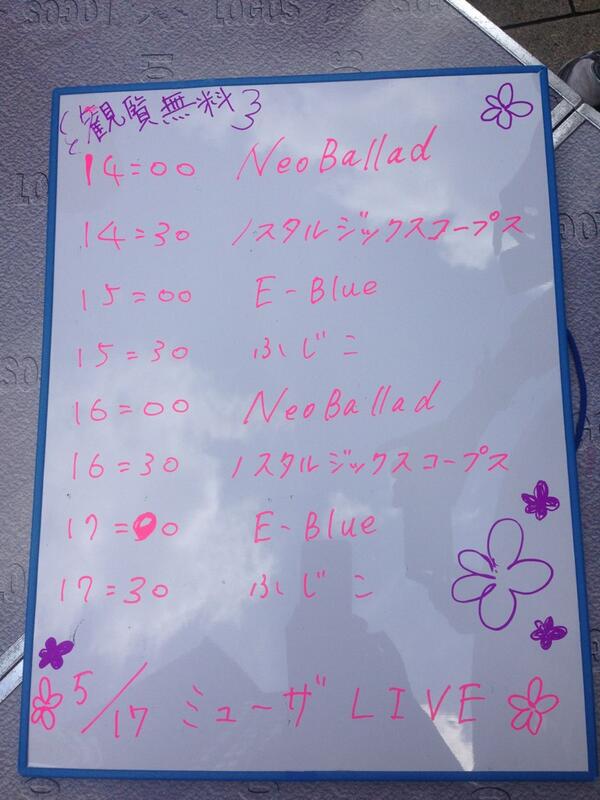 観覧無料
14:00 NeoBallad
14:30 ノスタルジックスコープス
15:00 E-Blue
15:30 ふじこ
16:00 NeoBallad
16:30 ノスタルジックスコープス
17:00 E-Blue
17:30 ふじこ
5/17 ミューザ LIVE
LOGOS